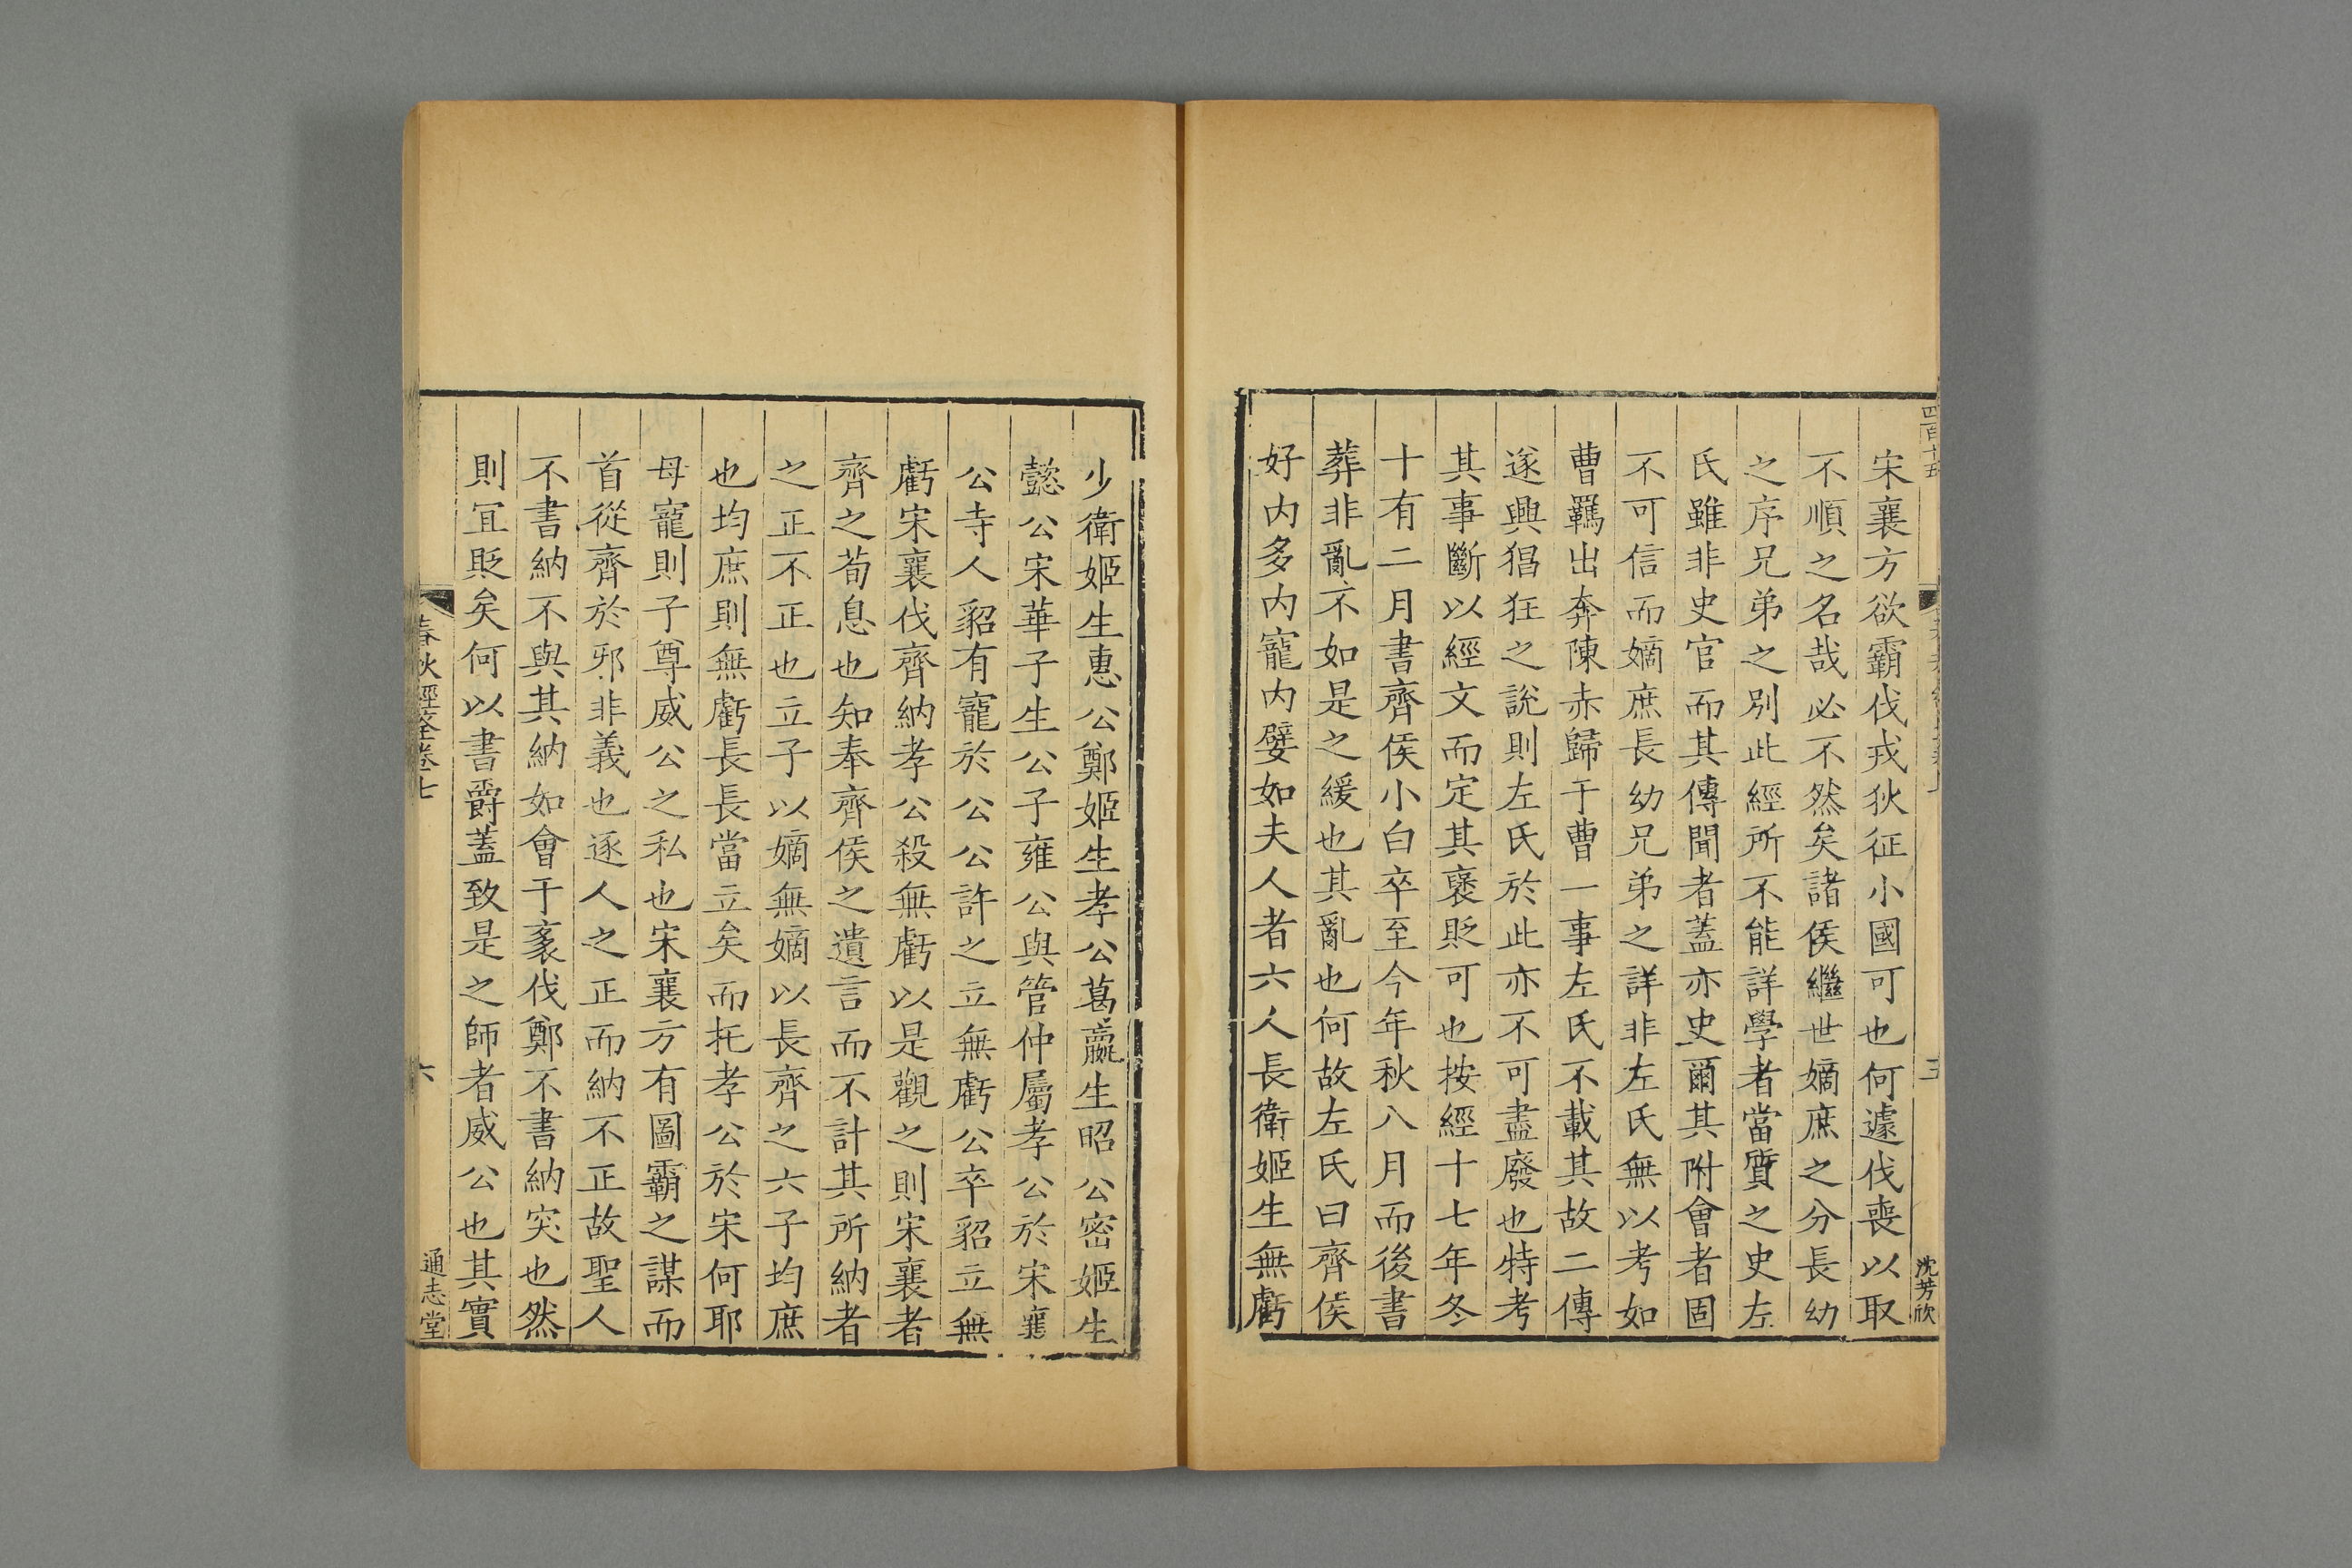 四百十五
沈芳欣
宋襄方欲霸伐戎狄征小國可也何遽伐喪以取
不順之名哉必不然矣諸侯繼世嫡庶之分長幼
之序兄弟之別此經所不能詳學者當質之史左
氏雖非史官而其傳聞者蓋亦史爾其附會者固
不可信而嫡庶長幼兄弟之詳非左氏無以考如
曹羈出奔陳赤歸于曹一事左氏不載其故二傳
遂興猖狂之說則左氏於此亦不可盡廢也特考
其事斷以經文而定其褒貶可也按經十七年冬
十有二月書齊侯小白卒至今年秋八月而後書
葬非亂不如是之緩也其亂也何故左氏曰齊侯
好内多内寵内嬖如夫人者六人長衛姬生無虧
少衛姬生惠公鄭姬生孝公葛嬴生昭公密姬生
懿公宋華子生公子雍公與管仲屬孝公於宋襄
公寺人貂有寵於公公許之立無虧公卒貂立無
虧宋襄伐齊納孝公殺無虧以是觀之則宋襄者
齊之荀息也知奉齊侯之遺言而不計其所納者
之正不正也立子以嫡無嫡以長齊之六子均庶
也均庶則無虧長長當立矣而托孝公於宋何耶
母寵則子尊威公之私也宋襄方有圖霸之謀而
首從齊於邪非義也逐人之正而納不正故聖人
不書納不與其納如會于袤伐鄭不書納突也然
則冝貶矣何以書爵蓋致是之師者威公也其實
春秋經筌卷七
六
通志堂